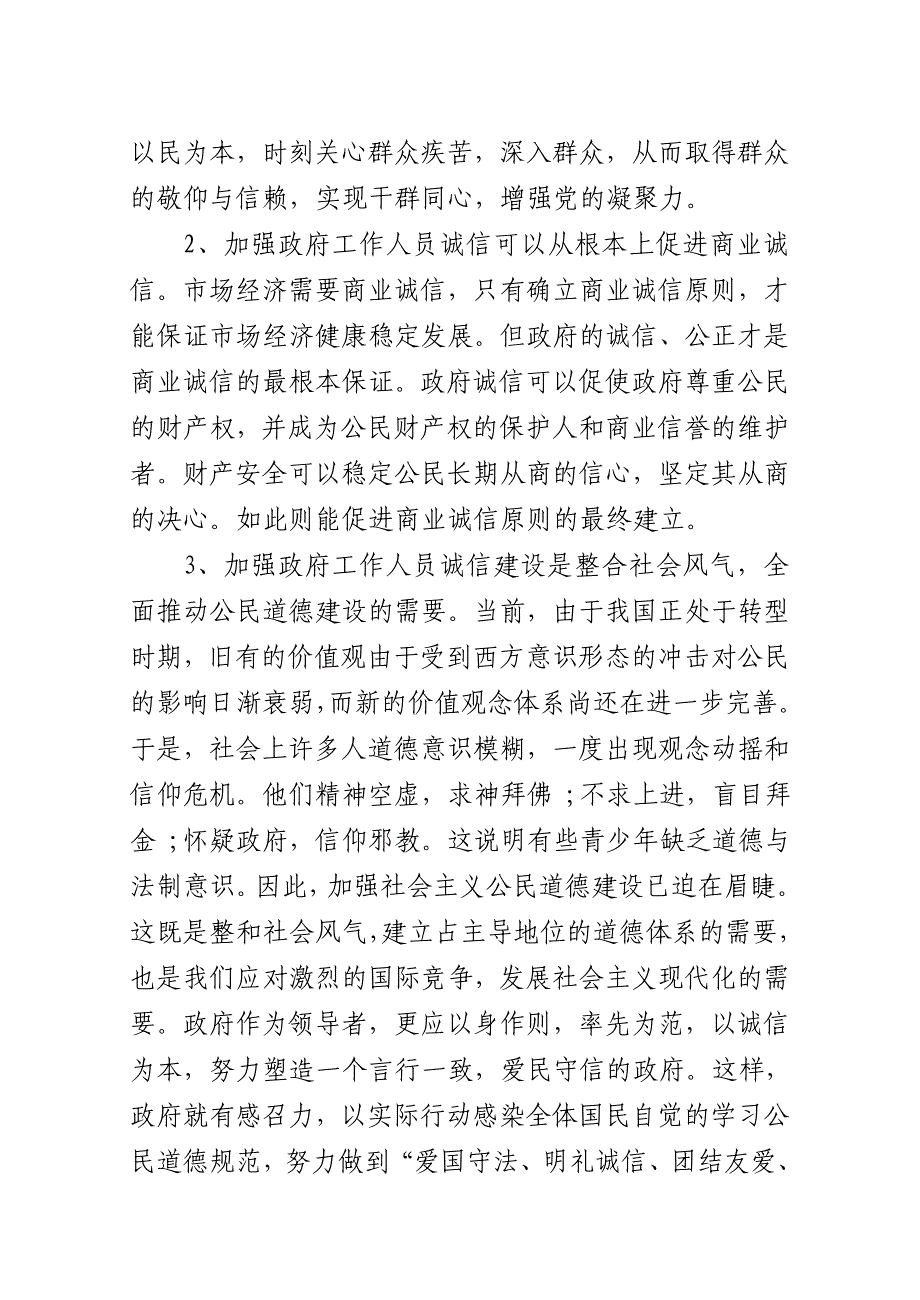 以民为本，时刻关心群众疾苦，深入群众，从而取得群众
的敬仰与信赖，实现干群同心，增强党的凝聚力。
2、加强政府工作人员诚信可以从根本上促进商业诚
信。市场经济需要商业诚信，只有确立商业诚信原则，才
能保证市场经济健康稳定发展。但政府的诚信、公正才是
商业诚信的最根本保证。政府诚信可以促使政府尊重公民
的财产权，并成为公民财产权的保护人和商业信誉的维护
者。财产安全可以稳定公民长期从商的信心，坚定其从商
的决心。如此则能促进商业诚信原则的最终建立。
3、加强政府工作人员诚信建设是整合社会风气，全
面推动公民道德建设的需要。当前，由于我国正处于转型
时期，旧有的价值观由于受到西方意识形态的冲击对公民
的影响日渐衰弱，而新的价值观念体系尚还在进一步完善。
于是，社会上许多人道德意识模糊，一度出现观念动摇和
信仰危机。他们精神空虚，求神拜佛；不求上进，盲目拜
金；怀疑政府，信仰邪教。这说明有些青少年缺乏道德与
法制意识。因此，加强社会主义公民道德建设已迫在眉睫。
这既是整和社会风气，建立占主导地位的道德体系的需要，
也是我们应对激烈的国际竞争，发展社会主义现代化的需
要。政府作为领导者，更应以身作则，率先为范，以诚信
为本，努力塑造一个言行一致，爱民守信的政府。这样，
政府就有感召力，以实际行动感染全体国民自觉的学习公
民道德规范，努力做到“爱国守法、明礼诚信、团结友爱、